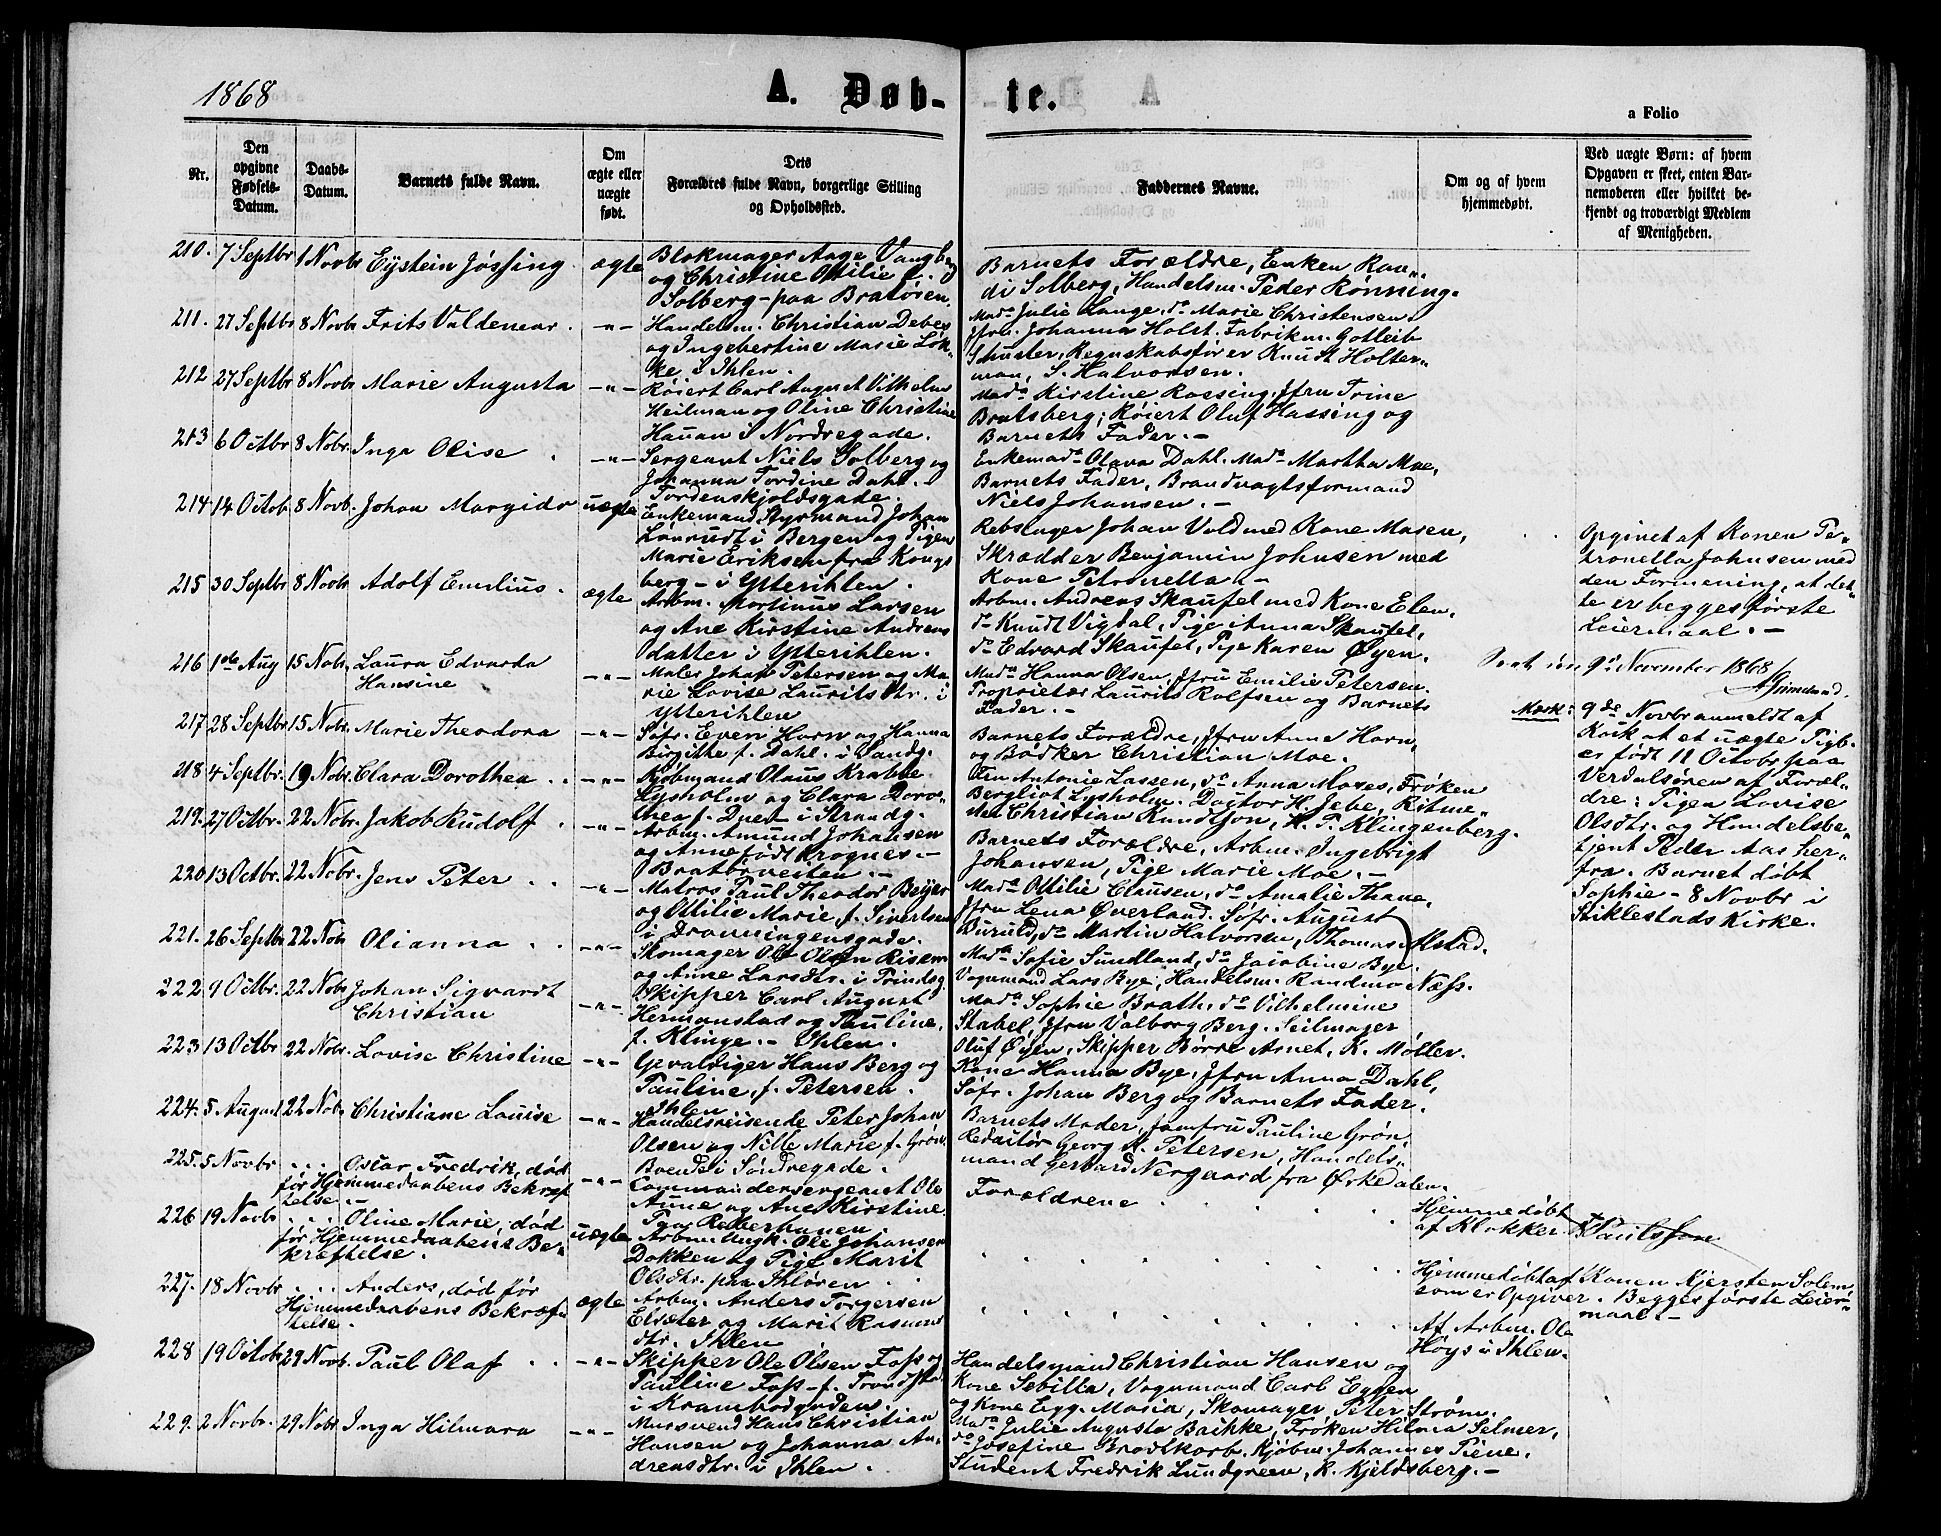 1868
A. Døb-
te.
a Folio
Nr.
Den
opgivne
Fødsels-
Datum.
Daabs-
Datum.
Barnets fulde Navn.
Om
ægte eller
uægte
født.
Dets
Forældres fulde Navn, borgerlige Stilling
og Opholdssted.
Faddernes Navne.
Om og af hvem
hjemmedøbt.
Ved uægte Børn: af hvem
Opgaven er skeet, enten Bar-
nemoderen eller hvilket be-
kjendt og troværdigt Medlem
af Menigheden.
210. 7 Septbr 1 Novbr Eystein Jøssing. ægte
Blokmager Aage Vangberg
og Christine Ottilie f.
Solberg - paa Bratøren.
Barnets Forældre, Enken Ran-
di Solberg, Handelsm. Peder Rønning.
211. 27 Septbr 8 Novbr Frits Valdemar. -"-
Handelsm. Christian Debes
og Ingebertine Marie Løk-
ke i Ihlen.
Mada Julie Lange, do Marie Christensen.
Jfru. Johanna Holst. Fabrikm. Gotleib
Schuster, Regnskabsfører Knust Holter-
man, S. Halvorsen.
212 27 Septbr 8 Novbr Marie Augusta -"-
Røiert Carl August Vilhelm
Heilman og Oline Christine
Hauan i Nordregade.
Mada Kirstine Rossing, Jfru Trine
Bratsberg; Røiert Oluf Hassing og
Barnets Fader. -
213 6 Octbr 8 Nobr. Inga Olise -"-
Sergeant Niels Solberg og
Johanna Tordine Dahl.
Tordenskjoldsgade.
Enkemada Olava Dahl. Mada Martha Moe,
Barnets Fader, Brandvagtsformand
Niels Johansen. -
214 14 Octob. 8 Novb. Johan Margido uægte
Enkemand Styrmand Johan
Lauritdt i Bergen og Pigen
Marie Eriksen fra Kongs
berg - i Ytterihlen.
Rebslager Johan Vold med Kone Maren,
Skrædder Benjamin Johnsen med
Kone Petronella. -
Opgivet af Konen Pe-
tronella Johnsen med
den Formening, at det-
te er begges første
Leiermaal. -
215 30 Septbr 8 Novbr Adolf Emilius. ægte
Arbm. Martinus Larsen
og Ane Kirstine Andreas
datter i Ytterihlen.
Arbm. Andreas Skaufel med Kone Elen,
do Knudt Vigdal, Pige Anna Skaufel,
do Edvard Skaufel, Pige Karen Øyen.
216 1de Aug 15 Nobr. Laura Edvarda
Hansine -"-
Maler Johan Petersen og Ma
rie Lovise Lauritsdtr. i
Ytterihlen
Mada Hanna Olsen, Jfru Emilie Petersen.
Proprietær Laurits Rolfsen og Barnets
Fader. -
9de November 1868
217 28 Septbr 15 Nobr. Marie Theodora -"-
Søfr. Even Horn og Hanna
Birgitte f. Dahl. i Sandg.
Barnets Forældre, Jfru Anne Horn,
og Bødker Christian Moe.
Mærk: 9de Novbr anmeldt af
Koik at et uægte Pigb.
er født 11 Octobr paa
Verdalsøren af Foræl-
dre: Pigen Lovise
Olsdtr. og Handelsbe-
tjent Peder Aas her-
fra. Barnet døbt
Sophie - 8 Novbr i
Stiklestads Kirke.
218 4 Septbr. 19 Nobr. Clara Dorothea. -"-
Kjøbmand Olaus Krabbe
Lysholm og Clara Doro-
thea f. Quer i Strandg.
Fru Antonie Lassen, do Anna Moses, Frøken
Bergliot Lysholm. Doctor H. Jebe, Ritme-
ster Christian Knudtzon, H. P. Klingenberg.
219. 27 Octbr. 22 Nobr. Jakob Rudolf. -"-
Arbm. Amund Johansen
og Anne født Krognes. -
Bratbøveiten. -
Barnets Forældre, Arbm. Ingebrigt
Johansen, Pige Marie Moe. -
220 13 Octbr. 22 Nobr. Jens Peter. -"-
Matros Paul Theodor Beijer
og Ottilie Marie, f. Sivertsen
i Dronningensgade.
Mada Ottilie Clausen, do Amalie Thane,
Jfru Lena Øverland. Søfr. August
Buruld, do Martin Halvorsen, Thomas Alstad.
221. 26 Septbr 22 Nob Olianna. -"-
Skomager Ole Olsen Risem
og Anne Larsdtr. i Prindsg.
Mada Sofie Sundland, do Jacobine Bye.
Vognmand Lars Bye, Handelsm. Randmo Næss.
222 9 Octbr. 22 Nobr Johan Sigvardt
Christian -"-
Skipper Carl August
Hermanstad og Pauline,
f. Klinge. - Ihlen.
Mada Sophie Brath, do Vilhelmine
Stabel, Jfru Valborg Berg. Seilmager
Oluf Øyen, Skipper Børre Arnet, K. Møller.
223 13 Octbr 22 Nobr. Lovise Christine -"-
Gevaldiger Hans Berg og
Pauline, f. Petersen.
Ihlen
Kone Hanna Bye, Jfru Anna Dahl,
Søfr. Johan Berg og Barnets Fader.
224. 5 August 22 Nob. Christiane Lauise -"-
Handelsreisende Peter Johan
Olsen og Nille Marie f. Grøn.
Boende i Søndregade.
Barnets Moder, Jomfru Pauline Grøn,
Redaktør Georg A. Petersen, Handels-
mand Gerhard Nergaard fra Ørkedalen.
225. 5 Novbr Oscar Fredrik, død
før Hjemmedaabens Bekræf
telse. - -"-
Commandersergeant Ole
Aune og Ane Kirstine
Paa Reberbanen
Forældrene
Hjemmedøbt
af Klokker Paulsson
226 19 Novbr Oline Marie, død
før Hjemmedaabens Be-
kræftelse. uægte
Arbm. Ungk. Ole Johansen
Dokken og Pige Marit
Olsdtr. paa Ihløren
Hjemmedøbt af Konen Kjersten Solem,
som er Opgiver. Begges første Leier-
maal. -
227. 18 Novbr Anders, død før
Hjemmedaabens Bekræf-
telse. ægte
Arbm. Anders Torgersen
Elvæter og Marit Rasmus
dtr. Ihlen
Af Arbm. Ole
Høys i Ihlen.
228 19 Octobr 29 Novb. Paul Olaf -"-
Skipper Ole Olsen Foss og
Pauline Foss - f. Trondstad
i Krambodgaden.
Handelsmand Christian Hansen og
Kone Sebilla, Vognmand Carl Eggen
og Kone Egg. Maria, Skomager Peter Strøm.
229. 2 Novbr. 29 Nobr. Inga Hilmara -"-
Mursvend Hans Christian
Hansen og Johanna An-
drensdtr. i Ihlen.
Mada Julie Augusta Baikke, Frøken Hilma Selmer,
do Josefine Brodtkorb, Kjøbm. Johannes Piene.
Student Fredrik Lundgreen, K. Kjeldsberg. -